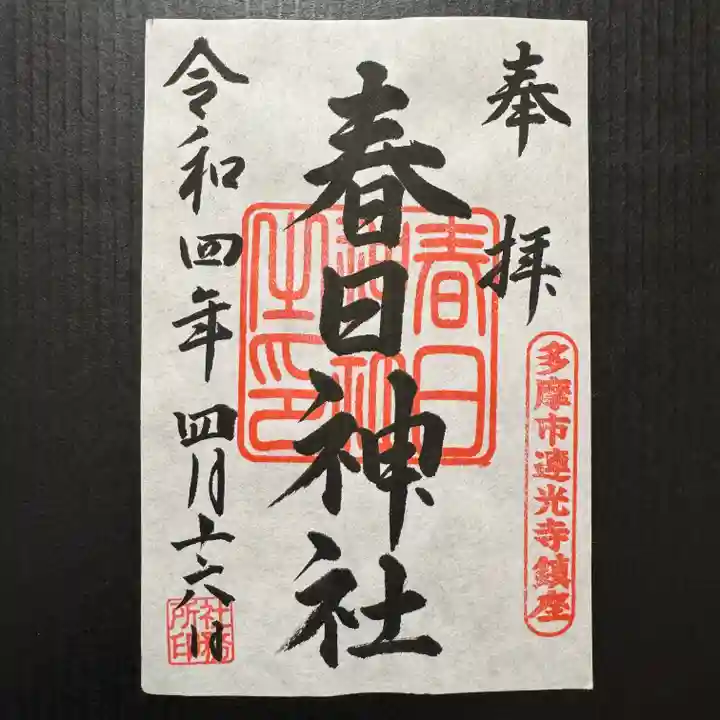 奉拝
多摩市連光寺鎮座
春日神社
春日神社之印
令和四年四月十六日
社務所印